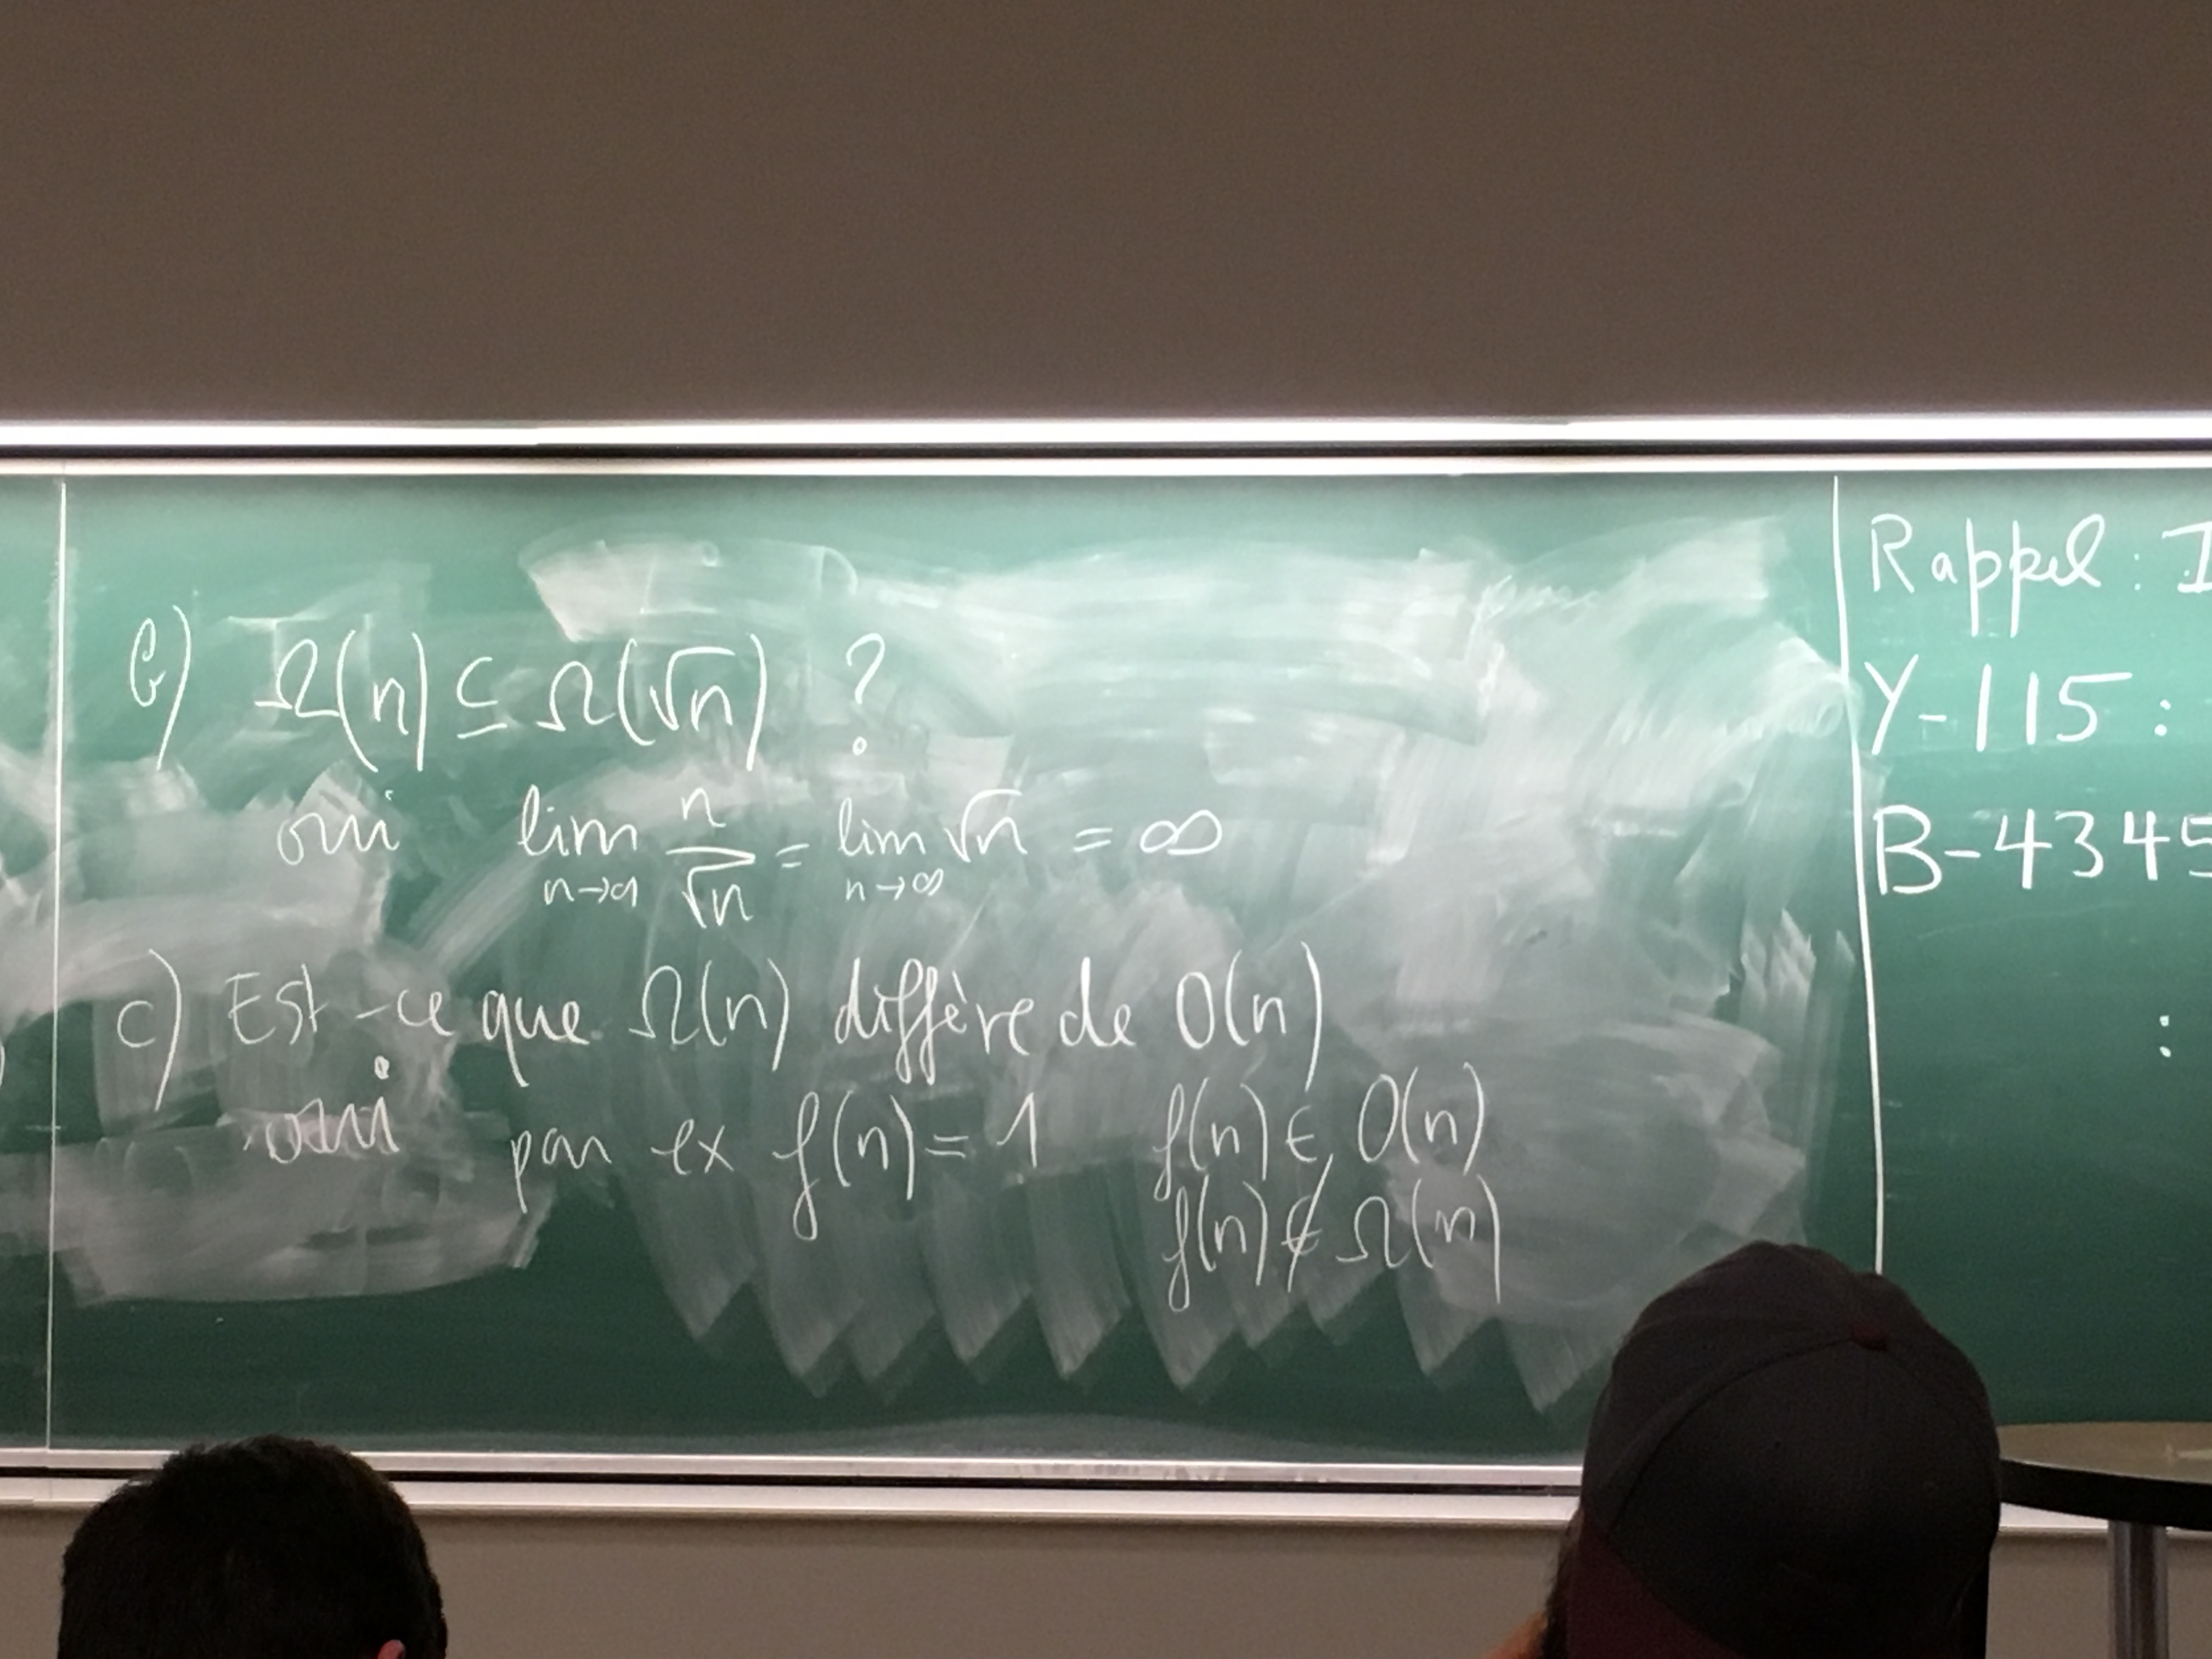 b) Ω(n) ⊆ Ω(√n) ?
oui lim n→∞ n/√n = lim n→∞ √n = ∞
c) Est-ce que Ω(n) diffère de O(n)
oui par ex f(n) = 1 f(n) ∈ O(n)
f(n) ∉ Ω(n)
Rappel : I
Y-115 :
B-4345
: